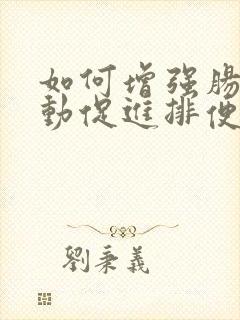 如何增强腸
動促進排便
劉秉義